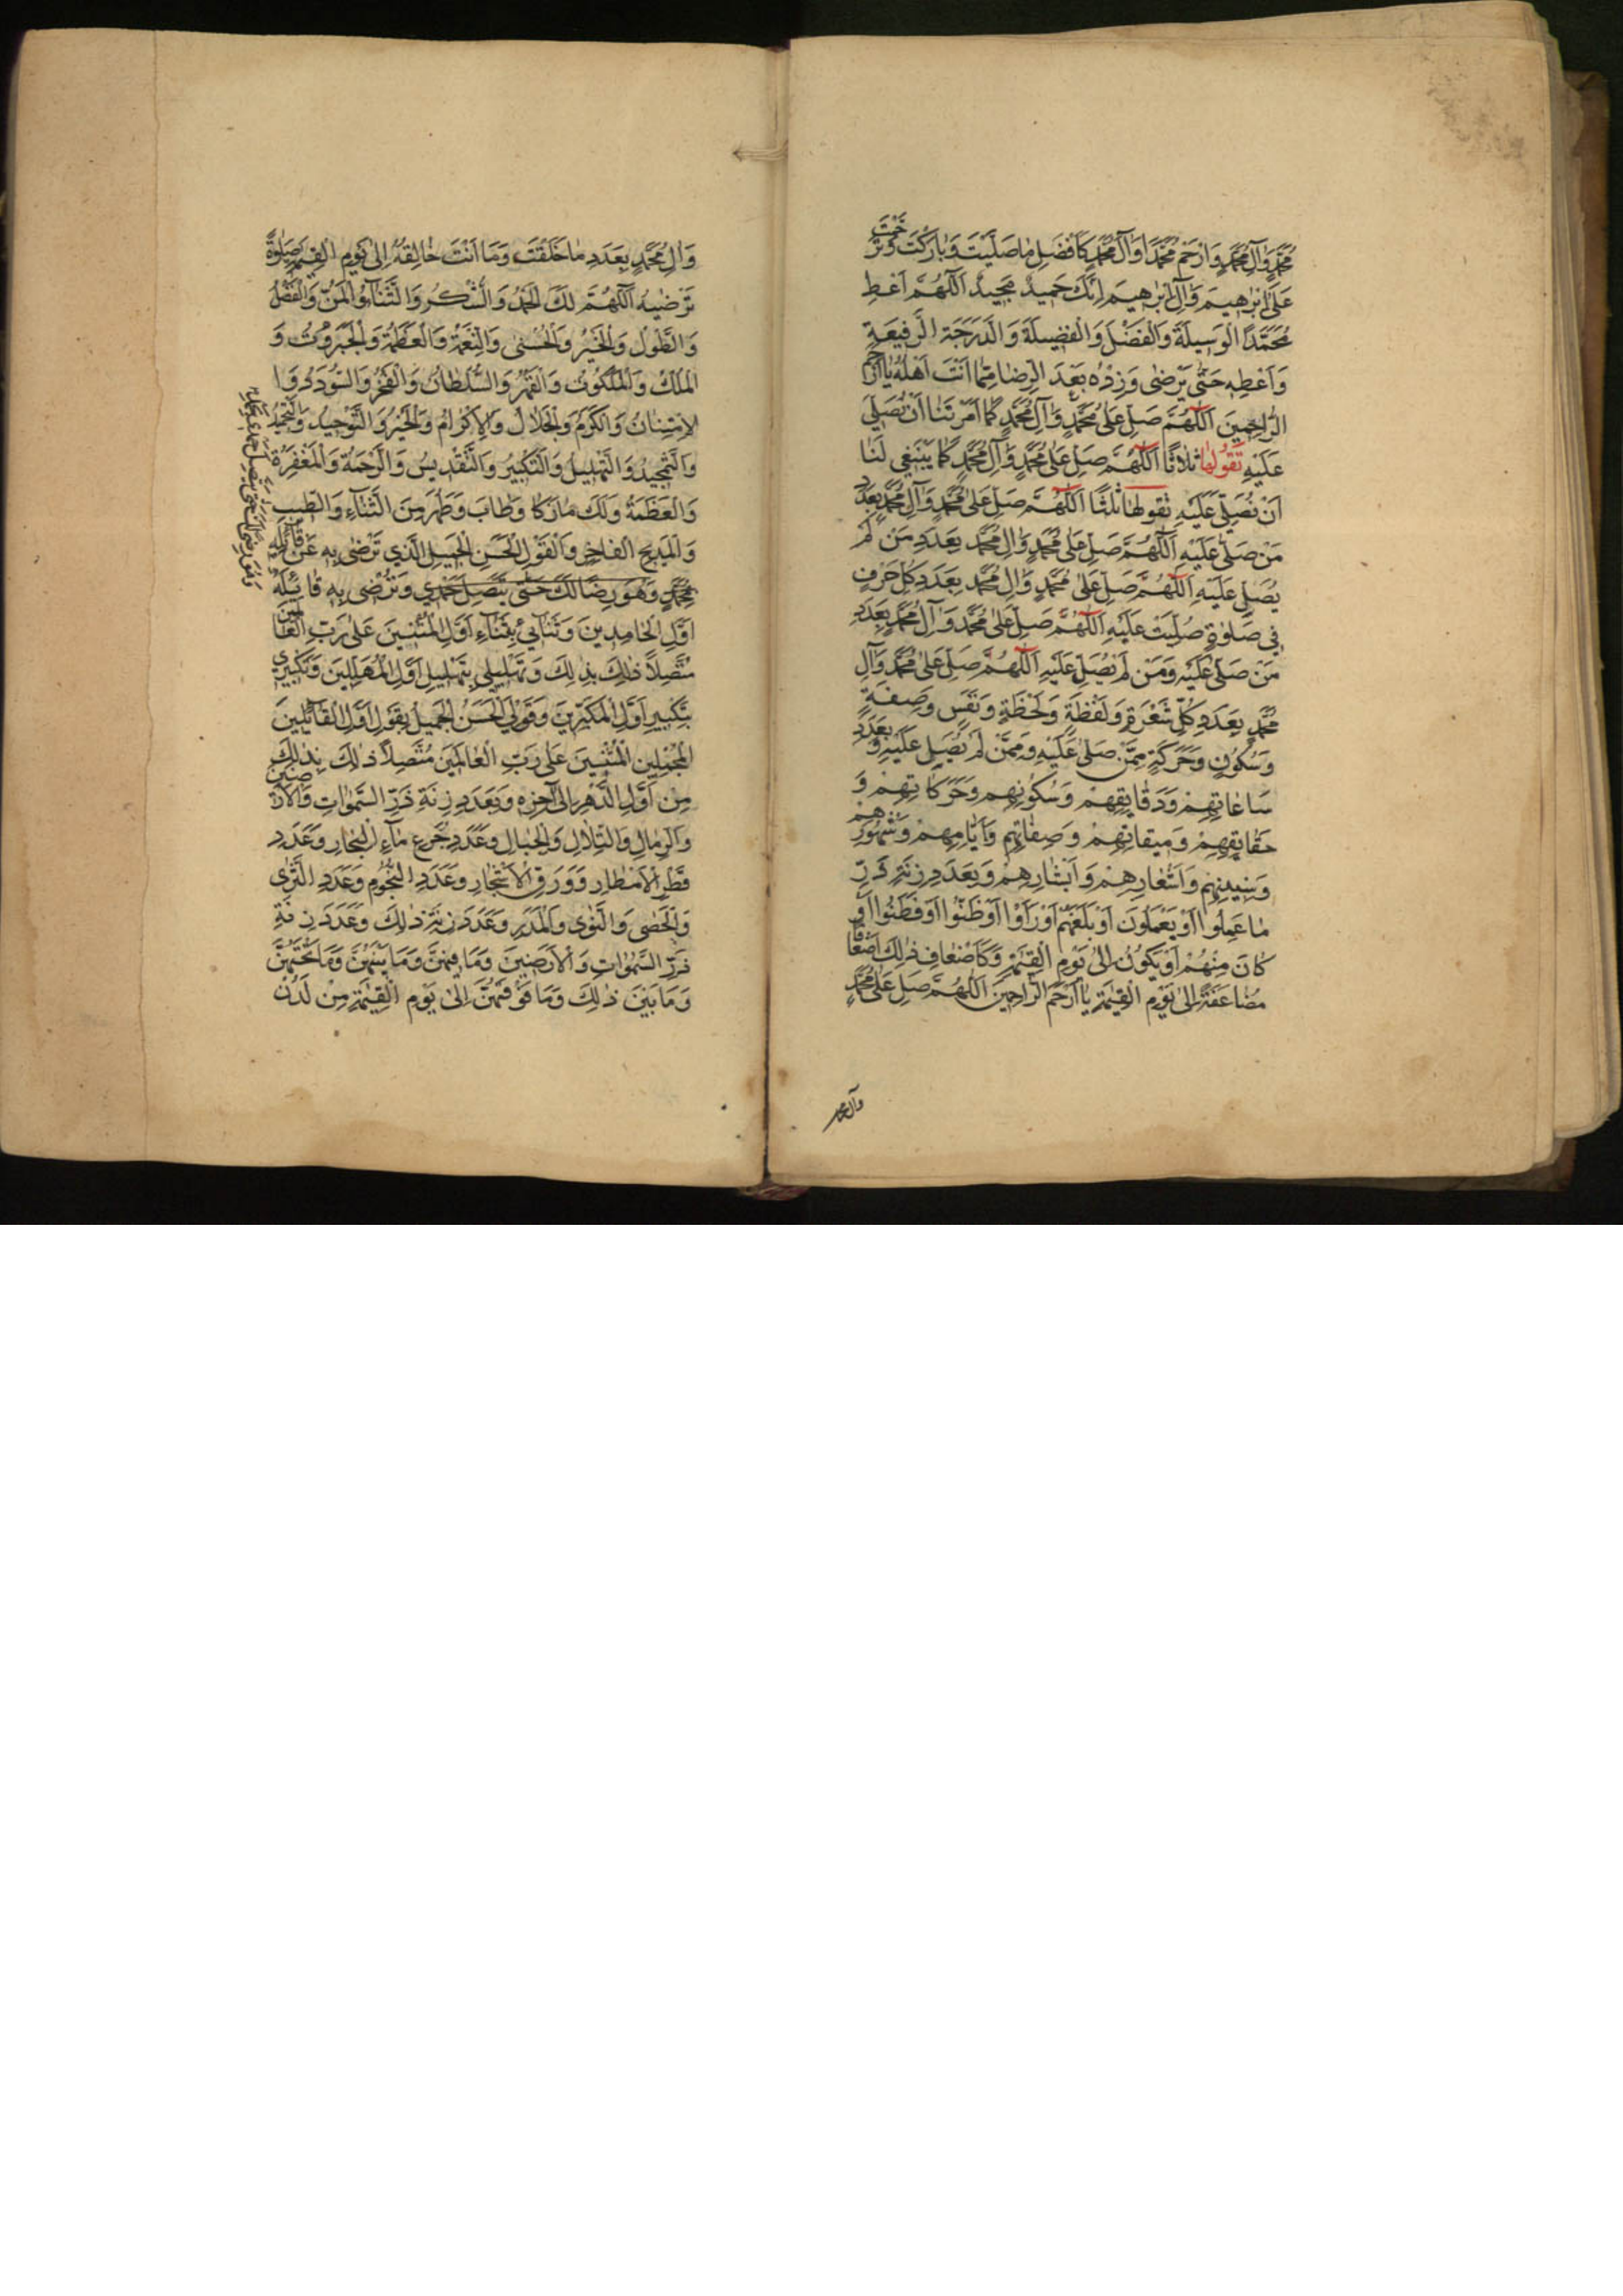 مُحَمَّدٍ وَآلِ مُحَمَّدٍ وَارْحَمْ مُحَمَّدًا وَآلَ مُحَمَّدٍ كَاَفْضَلِ مَا صَلَّيْتَ وَبَارَكْتَ وَتَرَحَّمْتَ
عَلَى اِبْرٰهِيمَ وَآلِ اِبْرٰهِيمَ اِنَّكَ حَمِيدٌ مَجِيدٌ اَللّٰهُمَّ اَعْطِ
مُحَمَّدًا الْوَسِيلَةَ وَالْفَضْلَ وَالْفَضِيلَةَ وَالدَّرَجَةَ الرَّفِيعَةَ
وَاَعْطِهِ حَتّٰى يَرْضٰى وَزِدْهُ بَعْدَ الرِّضَا مِمَّا اَنْتَ اَهْلُهُ يَا اَرْحَمَ
الرَّاحِمِينَ اَللّٰهُمَّ صَلِّ عَلٰى مُحَمَّدٍ وَآلِ مُحَمَّدٍ كَمَا اَمَرْتَنَا اَنْ نُصَلِّيَ
عَلَيْهِ تَقُولُهَا ثَلَاثًا اَللّٰهُمَّ صَلِّ عَلٰى مُحَمَّدٍ وَآلِ مُحَمَّدٍ كَمَا يَنْبَغِي لَنَا
اَنْ نُصَلِّيَ عَلَيْهِ تَقُولُهَا ثَلٰثًا اَللّٰهُمَّ صَلِّ عَلٰى مُحَمَّدٍ وَآلِ مُحَمَّدٍ بِعَدَدِ
مَنْ صَلّٰى عَلَيْهِ اَللّٰهُمَّ صَلِّ عَلٰى مُحَمَّدٍ وَآلِ مُحَمَّدٍ بِعَدَدِ مَنْ لَمْ
يُصَلِّ عَلَيْهِ اَللّٰهُمَّ صَلِّ عَلٰى مُحَمَّدٍ وَآلِ مُحَمَّدٍ بِعَدَدِ كُلِّ حَرْفٍ
فِي صَلٰوةٍ صُلِّيَتْ عَلَيْهِ اَللّٰهُمَّ صَلِّ عَلٰى مُحَمَّدٍ وَآلِ مُحَمَّدٍ بِعَدَدِ
مَنْ صَلّٰى عَلَيْهِ وَمَنْ لَمْ يُصَلِّ عَلَيْهِ اَللّٰهُمَّ صَلِّ عَلٰى مُحَمَّدٍ وَآلِ
مُحَمَّدٍ بِعَدَدِ كُلِّ شَعْرَةٍ وَلَفْظَةٍ وَلَحْظَةٍ وَنَفَسٍ وَصِفَةٍ
وَسُكُونٍ وَحَرَكَةٍ مِمَّنْ صَلّٰى عَلَيْهِ وَمِمَّنْ لَمْ يُصَلِّ عَلَيْهِ وَبِعَدَدِ
سَاعَاتِهِمْ وَدَقَايِقِهِمْ وَسُكُونِهِمْ وَحَرَكَاتِهِمْ وَ
حَقَايِقِهِمْ وَمِيقَاتِهِمْ وَصِفَاتِهِمْ وَاَيَّامِهِمْ وَشُهُورِهِمْ
وَسِنِينِهِمْ وَاَشْعَارِهِمْ وَاَبْشَارِهِمْ وَبِعَدَدِ زِنَةِ ذَرِّ
مَا عَمِلُوا اَوْ يَعْمَلُونَ اَوْ بَلَغَهُمْ اَوْ رَاَوْا اَوْ ظَنُّوا اَوْ فَطَنُوا اَوْ
كَانَ مِنْهُمْ اَوْ يَكُونُ اِلٰى يَوْمِ الْقِيٰمَةِ وَكَاَضْعَافِ ذٰلِكَ اَضْعَافًا
مُضَاعَفَةً اِلٰى يَوْمِ الْقِيٰمَةِ يَا اَرْحَمَ الرَّاحِمِينَ اَللّٰهُمَّ صَلِّ عَلٰى مُحَمَّدٍ
وآل محمد
وَآلِ مُحَمَّدٍ بِعَدَدِ مَا خَلَقْتَ وَمَا اَنْتَ خَالِقُهُ اِلٰى يَوْمِ الْقِيٰمَةِ صَلٰوةً
تَرْضٰيهُ اَللّٰهُمَّ لَكَ الْحَمْدُ وَالشُّكْرُ وَالثَّنَآءُ وَالْمَنُّ وَالْفَضْلُ
وَالطَّوْلُ وَالْخَيْرُ وَالْحُسْنٰى وَالنِّعْمَةُ وَالْعَظَمَةُ وَالْجَبَرُوتُ وَ
الْمُلْكُ وَالْمَلَكُوتُ وَالْقَهْرُ وَالسُّلْطَانُ وَالْفَخْرُ وَالسُّودَدُ وَا
لْاِمْتِنَانُ وَالْكَرَمُ وَالْجَلَالُ وَالْاِكْرَامُ وَالْخَيْرُ وَالتَّوْحِيدُ وَالتَّحْمِيدُ
وَالتَّمْجِيدُ وَالتَّهْلِيلُ وَالتَّكْبِيرُ وَالتَّقْدِيسُ وَالرَّحْمَةُ وَالْمَغْفِرَةُ
وَالْعَظَمَةُ وَلَكَ مَا زَكَا وَطَابَ وَطَهُرَ مِنَ الثَّنَآءِ وَالطَّيِّبِ
وَالْمَدِيحِ الْفَاخِرِ وَالْقَوْلِ الْحَسَنِ الْجَمِيلِ الَّذِي تَرْضٰى بِهِ عَنْ قَآئِلِهِ
مُحَمَّدٍ وَهُوَ رِضًا لَكَ حَتّٰى يَتَّصِلَ حَمْدِي وَتَرْضٰى بِهِ قَايِلَهُ
اَوَّلِ الْحَامِدِينَ وَثَنَآئِي بِثَنَآءِ اَوَّلِ الْمُثْنِينَ عَلٰى رَبِّ الْعَالَمِينَ
مُتَّصِلًا ذٰلِكَ بِذٰلِكَ وَتَهْلِيلِي بِتَهْلِيلِ اَوَّلِ الْمُهَلِّلِينَ وَتَكْبِيرِي
بِتَكْبِيرِ اَوَّلِ الْمُكَبِّرِينَ وَقَوْلِيَ الْحَسَنُ الْجَمِيلُ بِقَوْلِ اَوَّلِ الْقَآئِلِينَ
الْمُجْمِلِينَ الْمُثْنِينَ عَلٰى رَبِّ الْعَالَمِينَ مُتَّصِلًا ذٰلِكَ بِذٰلِكَ
مِنْ اَوَّلِ الدَّهْرِ اِلٰى آخِرِهِ وَبِعَدَدِ زِنَةِ ذَرِّ السَّمٰوَاتِ وَالْاَرَضِينَ
وَالرِّمَالِ وَالتِّلَالِ وَالْجِبَالِ وَعَدَدِ جُرَعِ مَآءِ الْبِحَارِ وَعَدَدِ
قَطْرِ الْاَمْطَارِ وَوَرَقِ الْاَشْجَارِ وَعَدَدِ النُّجُومِ وَعَدَدِ الثَّرٰى
وَالْحَصٰى وَالنَّوٰى وَالْمَدَرِ وَعَدَدِ زِنَةِ ذٰلِكَ وَعَدَدِ زِنَةِ
ذَرِّ السَّمٰوَاتِ وَالْاَرَضِينَ وَمَا فِيهِنَّ وَمَا بَيْنَهُنَّ وَمَا تَحْتَهُنَّ
وَمَا بَيْنَ ذٰلِكَ وَمَا فَوْقَهُنَّ اِلٰى يَوْمِ الْقِيٰمَةِ مِنْ لَدُنْ